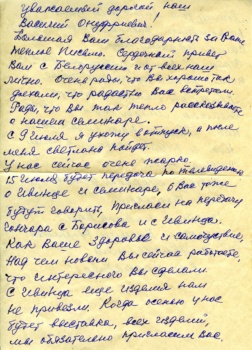 уважаемый дорогой наш
Василий Онуфриевич!
Большая Вам благодарность за Ваше
теплое письмо. Сердечный привет
Вам с Белоруссии и от всех нам
лично. Очень рады, что Вы хорошо так
что радостно Вас встретили.
Рады, что Вы так тепло рассказали
о нашем семинаре.
С 9 июля я ухожу в отпуск, а после
меня Светлана пойдет.
У нас сейчас очень жарко.
15 июля будет передача по телевидению
о Ивенце и семинаре, о Вас тоже
будут говорить, прислали на передачу
гончара с Борисова и с Ивенца.
Как Ваше здоровье и самочувствие,
Над чем новым Вы сейчас работаете,
что интересного Вы сделали.
С Ивенца еще изделия нам
не привезли. Когда осенью у нас
будет выставка, всех изделий,
мы обязательно пригласим Вас.